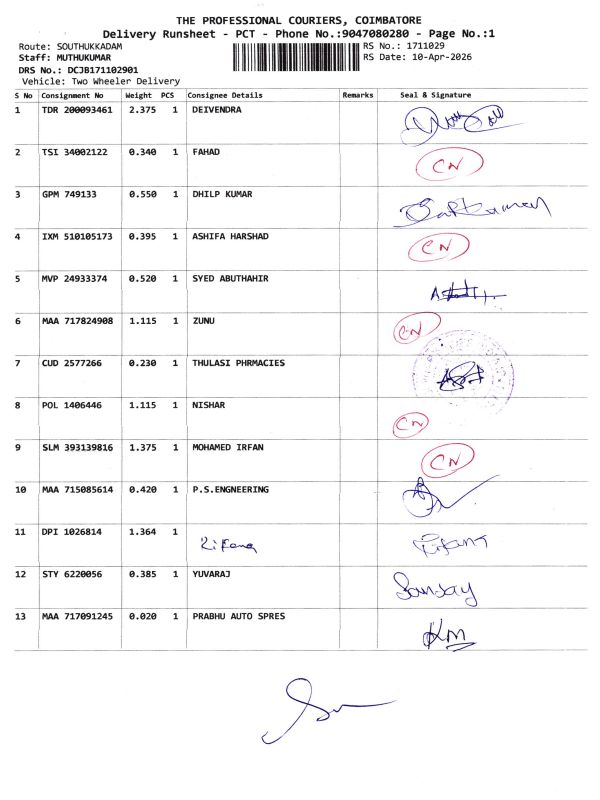 THE PROFESSIONAL COURIERS, COIMBATORE
Delivery Runsheet - PCT - Phone No.:9047080280 - Page No.:1
Route: SOUTHUKKADAM RS No.: 1711029
Staff: MUTHUKUMAR RS Date: 10-Apr-2026
DRS No.: DCJB171102901
Vehicle: Two Wheeler Delivery
S No Consignment No Weight PCS Consignee Details Remarks Seal & Signature
1 TDR 200093461 2.375 1 DEIVENDRA
2 TSI 34002122 0.340 1 FAHAD CN
3 GPM 749133 0.550 1 DHILP KUMAR
4 IXM 510105173 0.395 1 ASHIFA HARSHAD CN
5 MVP 24933374 0.520 1 SYED ABUTHAHIR
6 MAA 717824908 1.115 1 ZUNU CN
7 CUD 2577266 0.230 1 THULASI PHRMACIES
8 POL 1406446 1.115 1 NISHAR CN
9 SLM 393139816 1.375 1 MOHAMED IRFAN CN
10 MAA 715085614 0.420 1 P.S.ENGNEERING
11 DPI 1026814 1.364 1
12 STY 6220056 0.385 1 YUVARAJ Sanjay
13 MAA 717091245 0.020 1 PRABHU AUTO SPRES KM